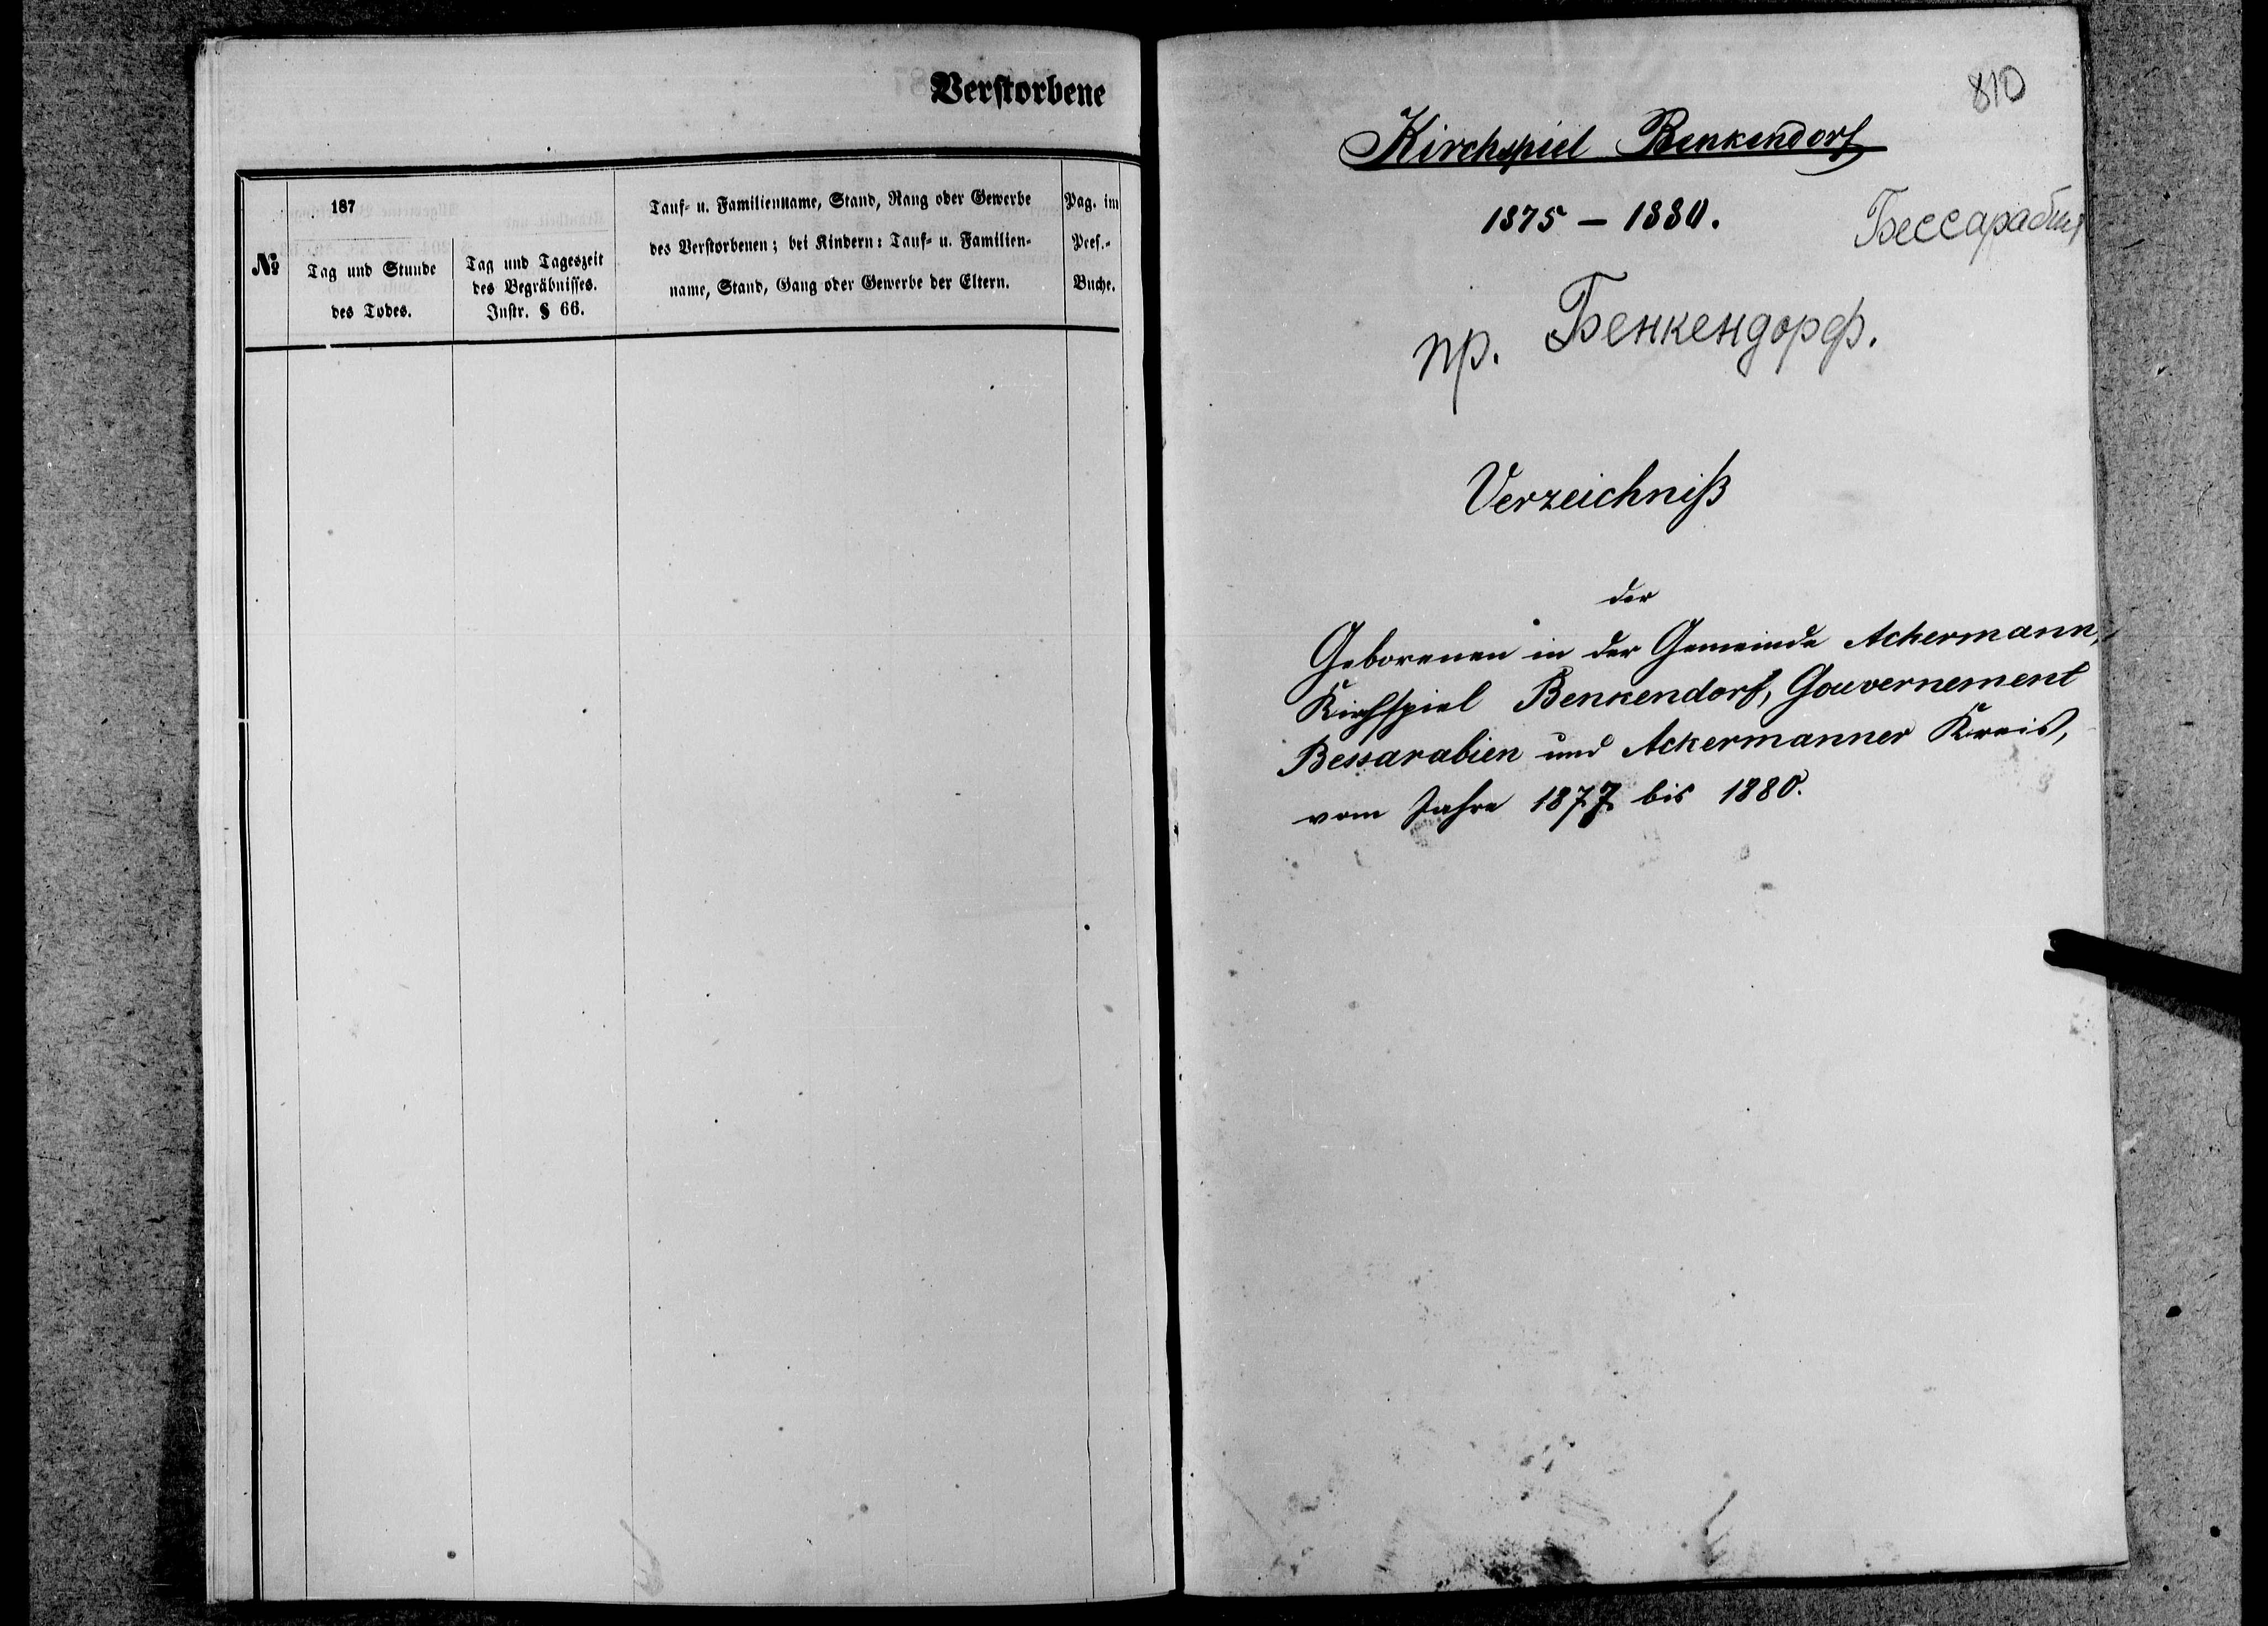 Verstorbene
187
№
Tag und Stunde
des Todes.
Tag und Tageszeit
des Begräbnisses.
Instr. § 66.
Tauf- u. Familienname, Stand, Rang oder Gewerbe
des Verstorbenen; bei Kindern: Tauf- u. Familien-
name, Stand, Gang oder Gewerbe der Eltern.
Pag. im
Pres.-
Buche.
810
Kirchspiel Benkendorf
1875 – 1880.
Бессарабия
пр. Бенкендорф.
Verzeichniß
der
Geborenen in der Gemeinde Ackermann,
Kirchspiel Benkendorf, Gouvernement
Bessarabien und Ackermanner Kreis,
vom Jahre 1877 bis 1880.